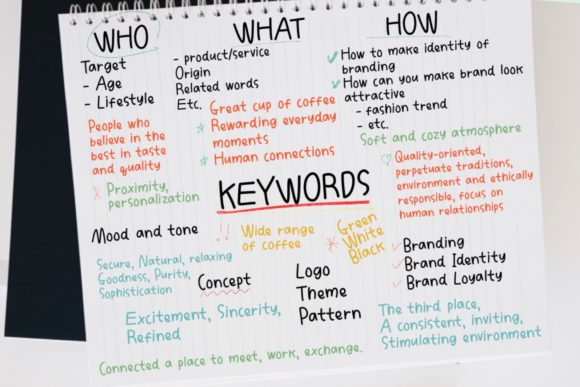 WHO
Target
- Age
- Lifestyle
People who
believe in the
best in taste
and quality
x Proximity,
personalization
WHAT
- product/service
Origin
Related words
Etc.
Great cup of coffee
* Rewarding everyday
moments
* Human connections
HOW
✓ How to make identity of
branding
✓ How can you make brand look
attractive
- fashion trend
- etc.
Soft and cozy atmosphere
♡ Quality-oriented,
perpetuate traditions,
environment and ethically
responsible, focus on
human relationships
KEYWORDS
Mood and tone
Secure, Natural, relaxing
Goodness, Purity,
Sophistication
!! Wide range
of coffee
Green
* White
Black
Concept
Logo
Theme
Pattern
✓ Branding
✓ Brand Identity
✓ Brand Loyalty
Excitement, Sincerity,
Refined
The third place,
A consistent, inviting,
Stimulating environment
Connected a place to meet, work, exchange.